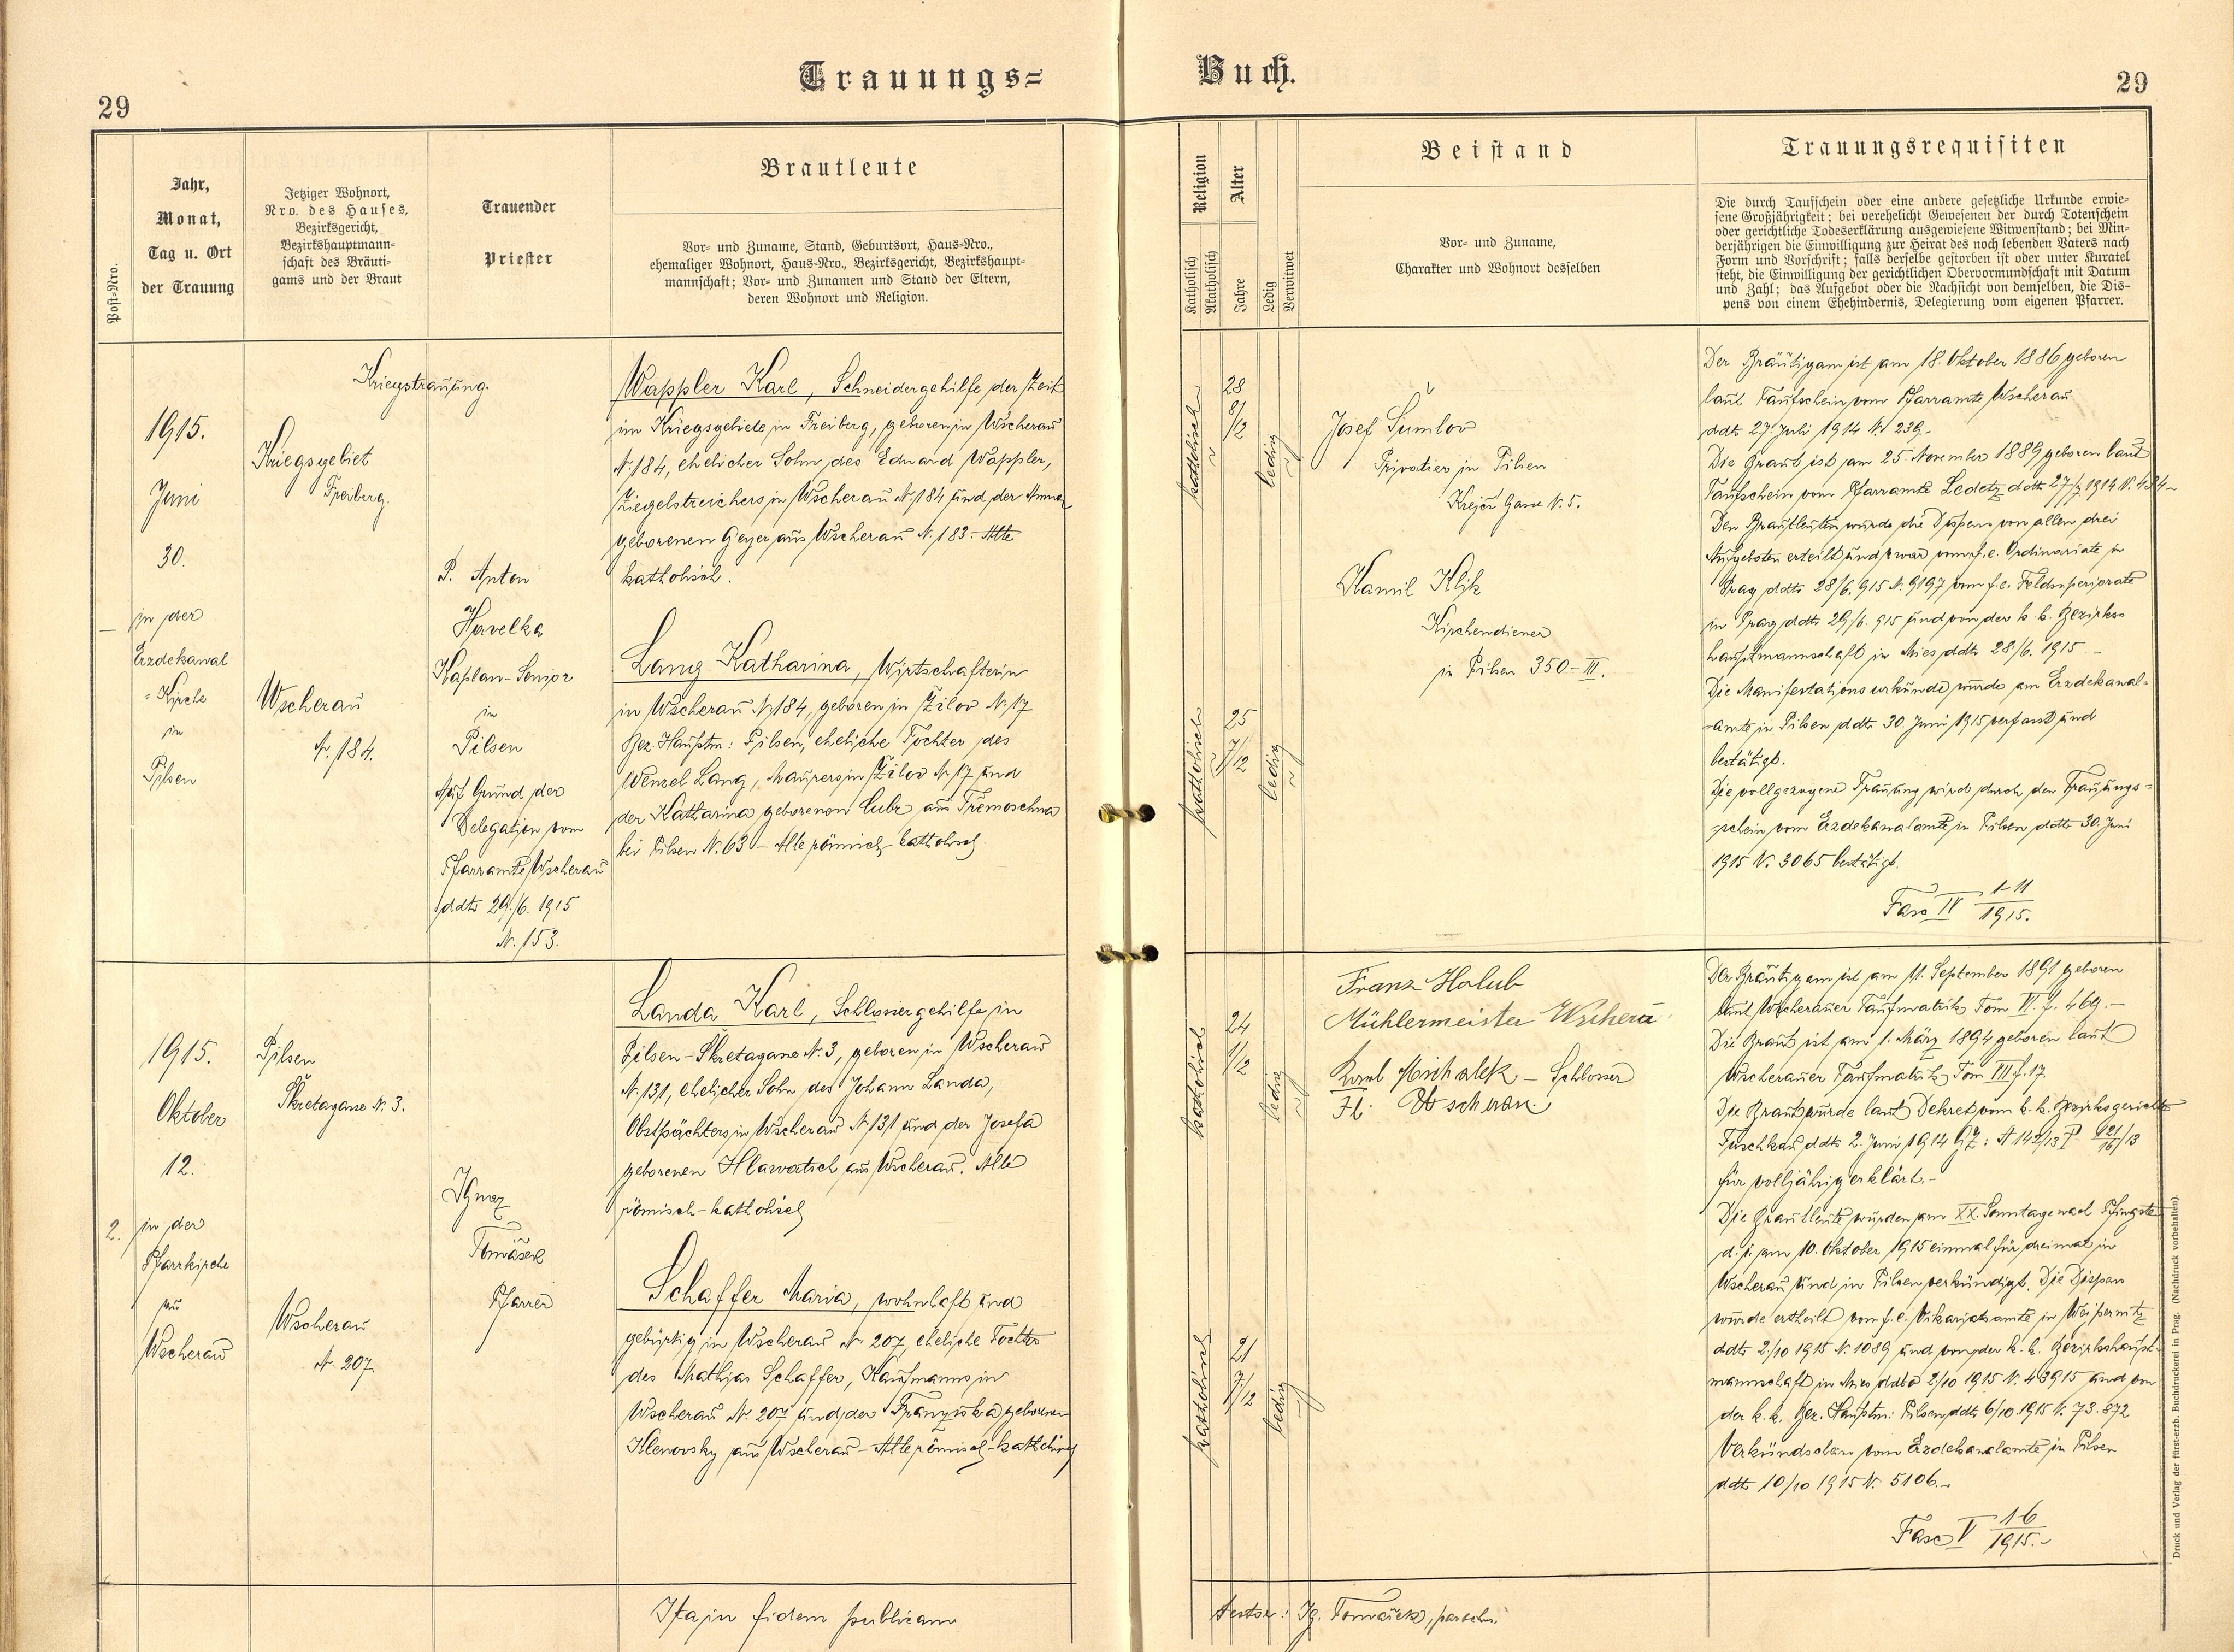 Trauungs=
Buch.
29
29
Post=Nro.
Jahr,
Monat,
Tag u. Ort
der Trauung
Jetziger Wohnort,
Nro. des Hauses,
Bezirksgericht,
Bezirkshauptmann=
schaft des Bräuti=
gams und der Braut
Trauender
Priester
Brautleute
Vor= und Zuname, Stand, Geburtsort, Haus=Nro.,
ehemaliger Wohnort, Haus=Nro., Bezirksgericht, Bezirkshaupt=
mannschaft; Vor= und Zunamen und Stand der Eltern,
deren Wohnort und Religion.
Religion
Katholisch
Akatholisch
Alter
Jahre
Ledig
Verwitwet
Beistand
Vor= und Zuname,
Charakter und Wohnort desselben
Trauungsrequisiten
Die durch Taufschein oder eine andere gesetzliche Urkunde erwie=
sene Großjährigkeit; bei verehelicht Gewesenen der durch Totenschein
oder gerichtliche Todeserklärung ausgewiesene Witwenstand; bei Min=
derjährigen die Einwilligung zur Heirat des noch lebenden Vaters nach
Form und Vorschrift; falls derselbe gestorben ist oder unter Kuratel
steht, die Einwilligung der gerichtlichen Obervormundschaft mit Datum
und Zahl; das Aufgebot oder die Nachsicht von demselben, die Dis=
pens von einem Ehehindernis, Delegierung vom eigenen Pfarrer.
Kriegstrauung.
1915.
Juni
30.
in der
Erzdekanal
-Kirche
in
Pilsen
Kriegsgebiet
Freiberg.
Wscherau
N. 184.
P. Anton
Havelka
Kaplan-Senior
in
Pilsen
Auf Grund der
Delegation vom
Pfarramte Wscherau
ddto 29./6. 1915
N. 153.
Wappler Karl, Schneidergehilfe der Zeit
im Kriegsgebiete in Freiberg, geboren in Wscherau
N. 184, ehelicher Sohn des Eduard Wappler,
Ziegelstreichers in Wscherau N. 184 und der Anna
geborenen Geyer aus Wscherau N. 183. Alle
katholisch.
Lang Katharina, Wirtschafterin
in Wscherau N. 184, geboren in Žilov N. 17
Bez. Hauptm: Pilsen, eheliche Tochter des
Wenzel Lang, Maurers in Žilov N. 17 und
der Katharina geborenen Cubr aus Tremoschna
bei Pilsen N. 63 - Alle römisch-katholisch.
katholisch
28
8/12
ledig
katholisch
25
7/12
ledig
Josef Šumlov
Privatier in Pilsen
Krejči Gasse N. 5.
Kamil Klik
Kirchendiener
in Pilsen 350-III.
Der Bräutigam ist am 18. Oktober 1886 geboren
laut Taufschein vom Pfarramte Wscherau
ddto 27. Juli 1914 N. 239.
Die Braut ist am 25. November 1889 geboren laut
Taufschein vom Pfarramte Ledetz ddto 27/7 1914 N. 434-
Den Brautleuten wurde die Dispens von allen drei
Aufgeboten erteilt und zwar vom f. e. Ordinariate in
Prag ddto 28/6. 915 N. 9197 vom f. e. Feldsuperiorate
in Prag ddto 29/6. 915 und von der k. k. Bezirks-
hauptmannschaft in Mies ddto 28/6. 1915.-
Die Manifestationsurkunde wurde am Erzdekanal-
-amte in Pilsen ddto 30. Juni 1915 verfasst und
bestätigt.
Die vollgezogene Trauung wird durch den Trauungs-
schein vom Erzdekanalamte in Pilsen ddto 30. Juni
1915 N. 3065 bestätigt.
Fasc IV 1-11
1915.
2.
1915.
Oktober
12.
in der
Pfarrkirche
zu
Wscherau
Pilsen
Škretagasse N. 3.
Wscherau
N. 207.
Ignaz
Tomášek
Pfarrer
Landa Karl, Schlossergehilfe in
Pilsen-Škretagasse N. 3, geboren in Wscherau
N. 131, ehelicher Sohn des Johann Landa,
Obstpächters in Wscherau N. 131 und der Josefa
geborenen Hlawatsch aus Wscherau. Alle
römisch-katholisch
Schaffer Maria, wohnhaft und
gebürtig in Wscherau N. 207, eheliche Tochter
des Mathias Schaffer, Kaufmanns in
Wscherau N. 207 und der Franziska geborenen
Klenovsky aus Wscherau - Alle römisch-katholisch
katholisch
24
1/12
ledig
katholisch
21
7/12
ledig
Franz Holub
Mühlermeister Wscherau
Karl Michalek - Schlosser
Wscherau.
Der Bräutigam ist am 11. September 1891 geboren
laut Wscherauer Taufmatrik Tom VI. f. 469.-
Die Braut ist am 1. März 1894 geboren laut
Wscherauer Taufmatrik Tom VII f. 17.
Die Braut wurde laut Dekret vom k. k. Bezirksgerichte
Tuschkau ddto 2. Juni 1914 GZ: A 142/13 P 121/16/13
für volljährig erklärt.-
Die Brautleute wurden am XX. Sonntage nach Pfingsten
d. i. am 10. Oktober 1915 einmal für dreimal in
Wscherau und in Pilsen verkündigt. Die Dispens
wurde ertheilt vom f. e. Vikariatsamte in Weipernitz
ddto 2/10 1915 N. 1089 und von der k. k. Bezirkshaupt-
mannschaft in Mies ddto 2/10 1915 N. 43915 und von
der k. k. Bez. Hauptm: Pilsen ddto 6/10 1915 N. 73.872
Verkündschein vom Erzdekanalamte in Pilsen
ddto 10/10 1915 N. 5106.-
Fasc V 1-6
1915.-
Ita in fidem publicam
testor: Ig. Tomášek, parochus
Druck und Verlag der fürst-erzb. Buchdruckerei in Prag. (Nachdruck vorbehalten).